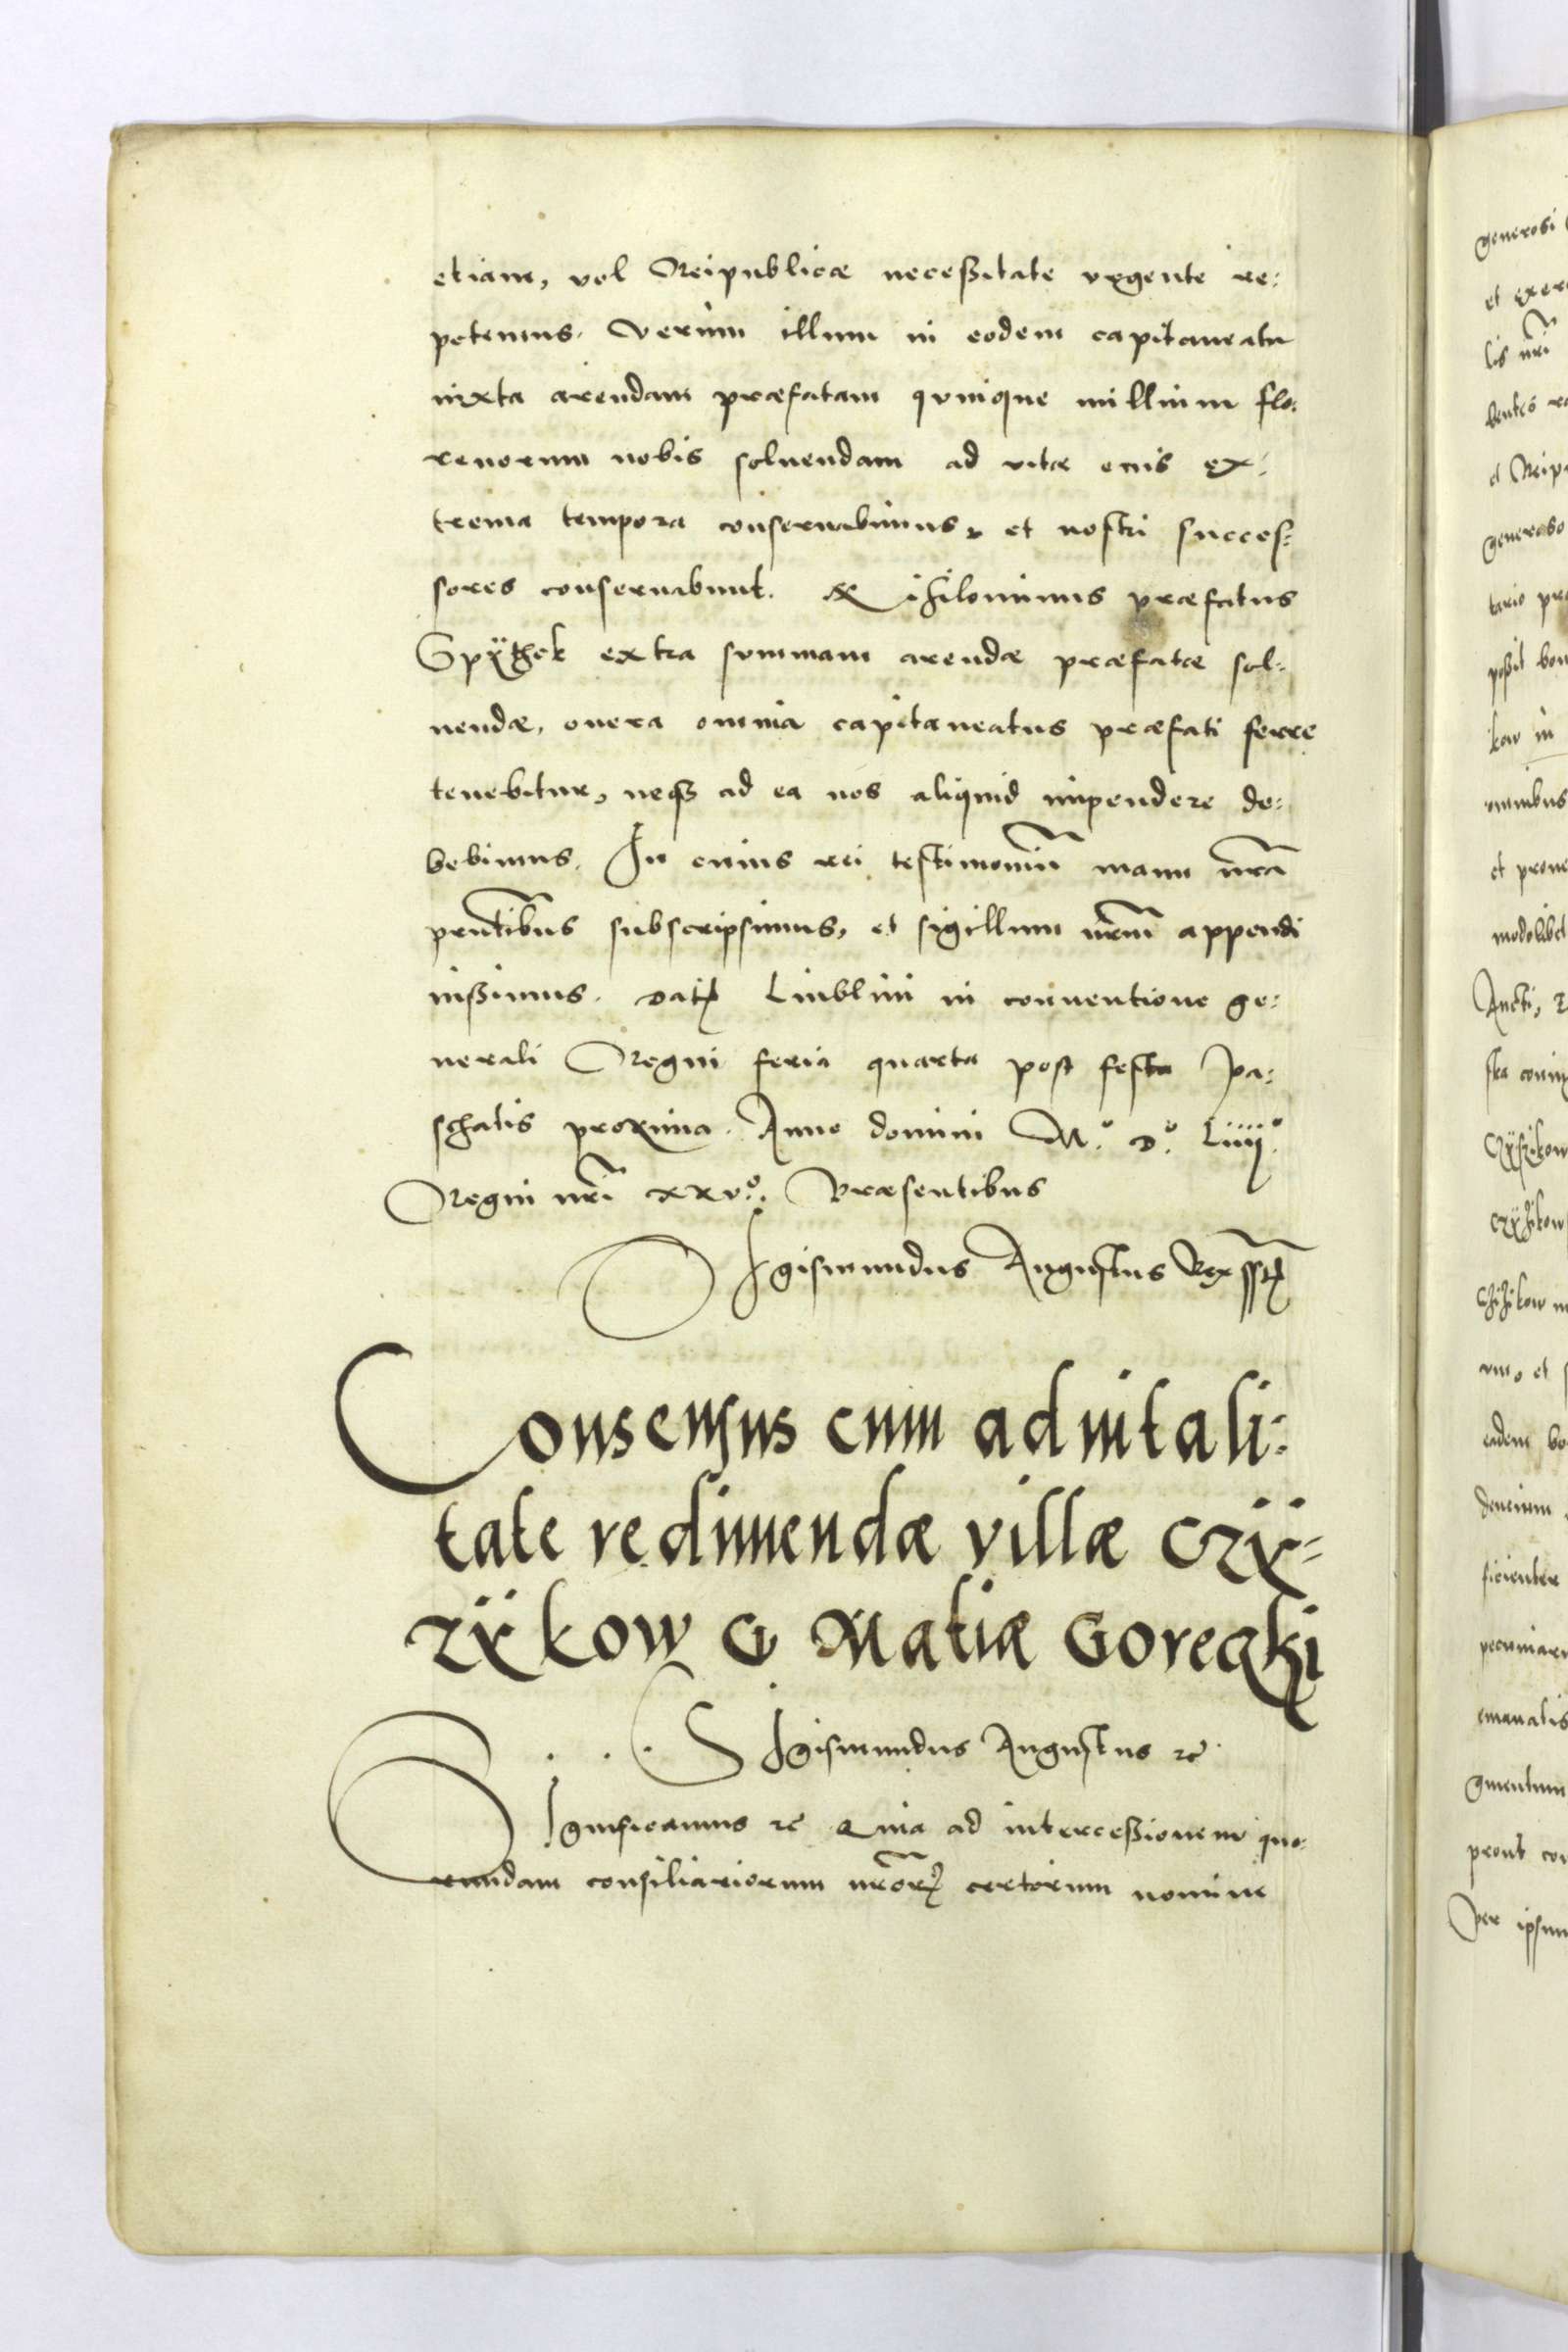 etiam, vel Reipublicæ necessitate vrgente re:
petemus. Verum illum in eodem capitaneatu
iuxta arendam præfatam quinque millium flo:
renorum nobis soluendam ad vitæ eius ex:
trema tempora conseruabimus, et nostri succes:
sores conseruabunt. Nihilominus præfatus
Spÿthek extra summam arendæ præfatæ sol:
uendæ, onera omnia capitaneatus præfati ferre
tenebitur, neqꝫ ad ea nos aliquid impendere de:
bebimus. In cuius rei testimoniũ manu nr̃a
prñtibus subscripsimus, et sigillum nr̃m appendi
iussimus. Datꝭ Liublini in conuentione ge:
nerali Regni feria quarta post festa Pa:
schatis proxima. Anno domini M.º D.º Liiij.º
Regni nr̃i xxv.º. Præsentibus
Sigismundus Augustus Rex sstꝭ
Consensus cum aduitali:
tate redimendæ villæ Czÿ:
zÿkow G Matiæ Goreczki
Sigismundus Augustus ꝛc̃
Significamus ꝛc̃ Quia ad intercessionem quo:
rundam consiliariorum nr̃orꝭ certorum nomine
generosi
et exer
lis nr̃i
bentes
et Reip
generoso
tario pr
possit bon
kow in
omnibus
et proue
modolibet
Aucti,
Czÿzikow
Czÿzikow
Czizikow
uno et
eadem bo
deueniun
ficienter
pecuniar
emanalis
gmentum
prout co
Per ipsum